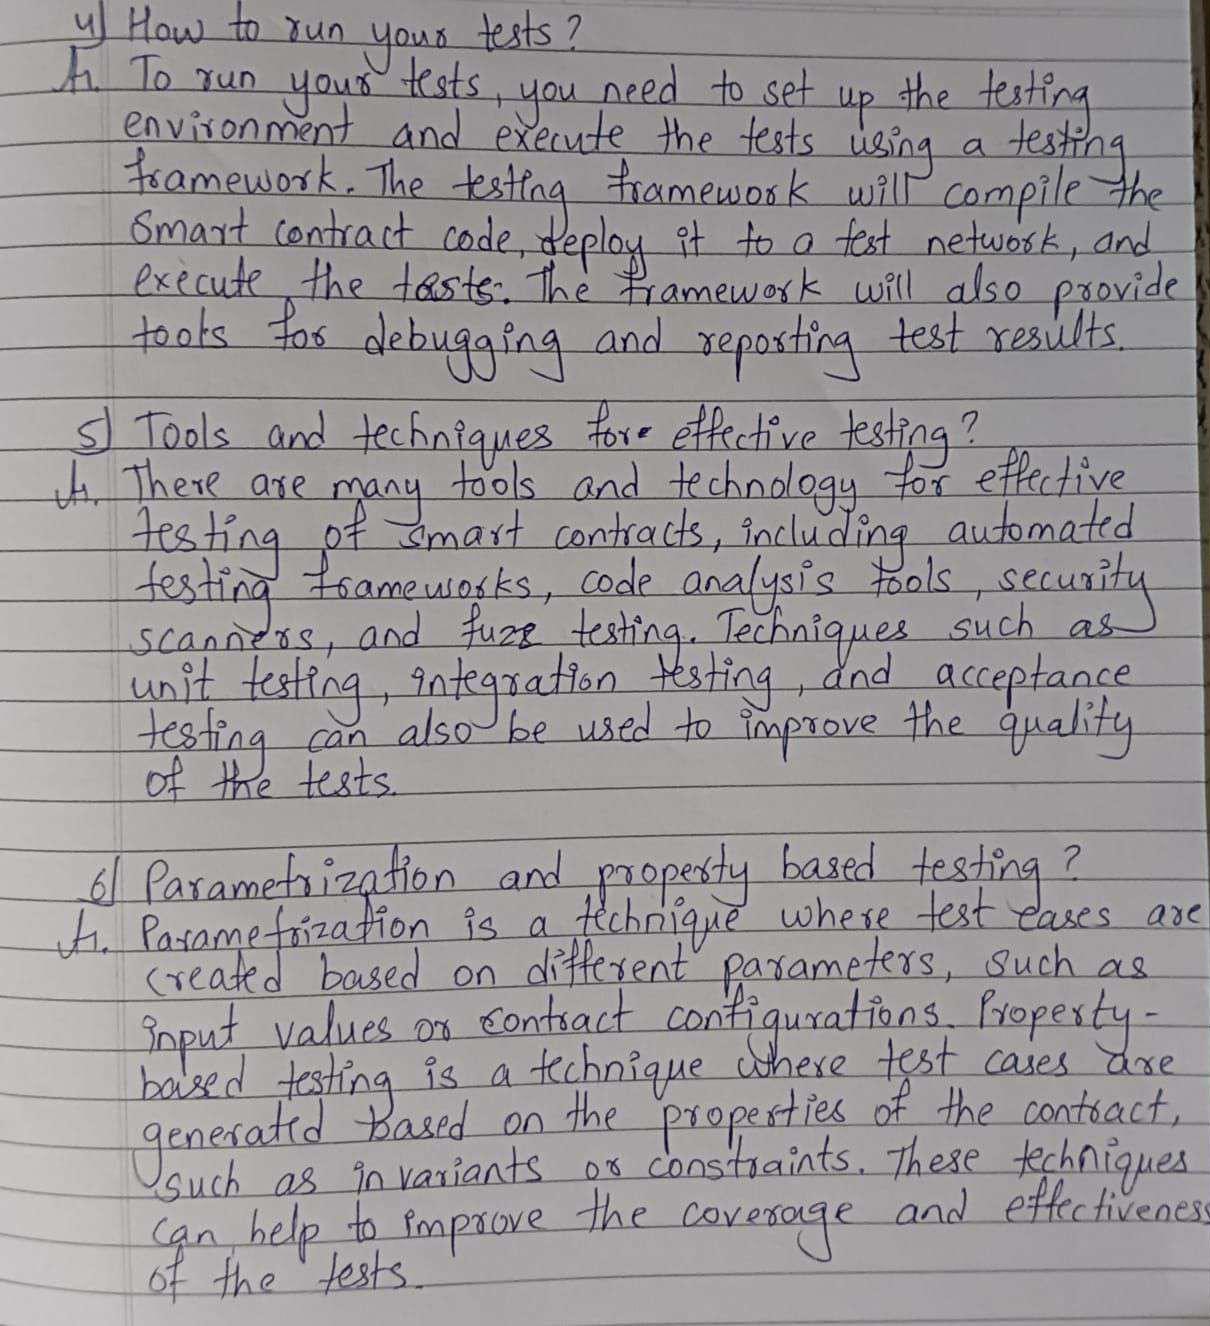 4) How to run your tests?
A. To run your tests, you need to set up the testing
environment and execute the tests using a testing
framework. The testing framework will compile the
Smart contract code, deploy it to a test network, and
execute the tests. The framework will also provide
tools for debugging and reporting test results.
5) Tools and techniques for effective testing?
A. There are many tools and technology for effective
testing of smart contracts, including automated
testing frameworks, code analysis tools, security
scanners, and fuzz testing. Techniques such as
unit testing, integration testing, and acceptance
testing can also be used to improve the quality
of the tests.
6) Parametrization and property based testing?
A. Parametrization is a technique where test cases are
created based on different parameters, such as
input values or contract configurations. Property-
based testing is a technique where test cases are
generated based on the properties of the contract,
such as invariants or constraints. These techniques
can help to improve the coverage and effectiveness
of the tests.